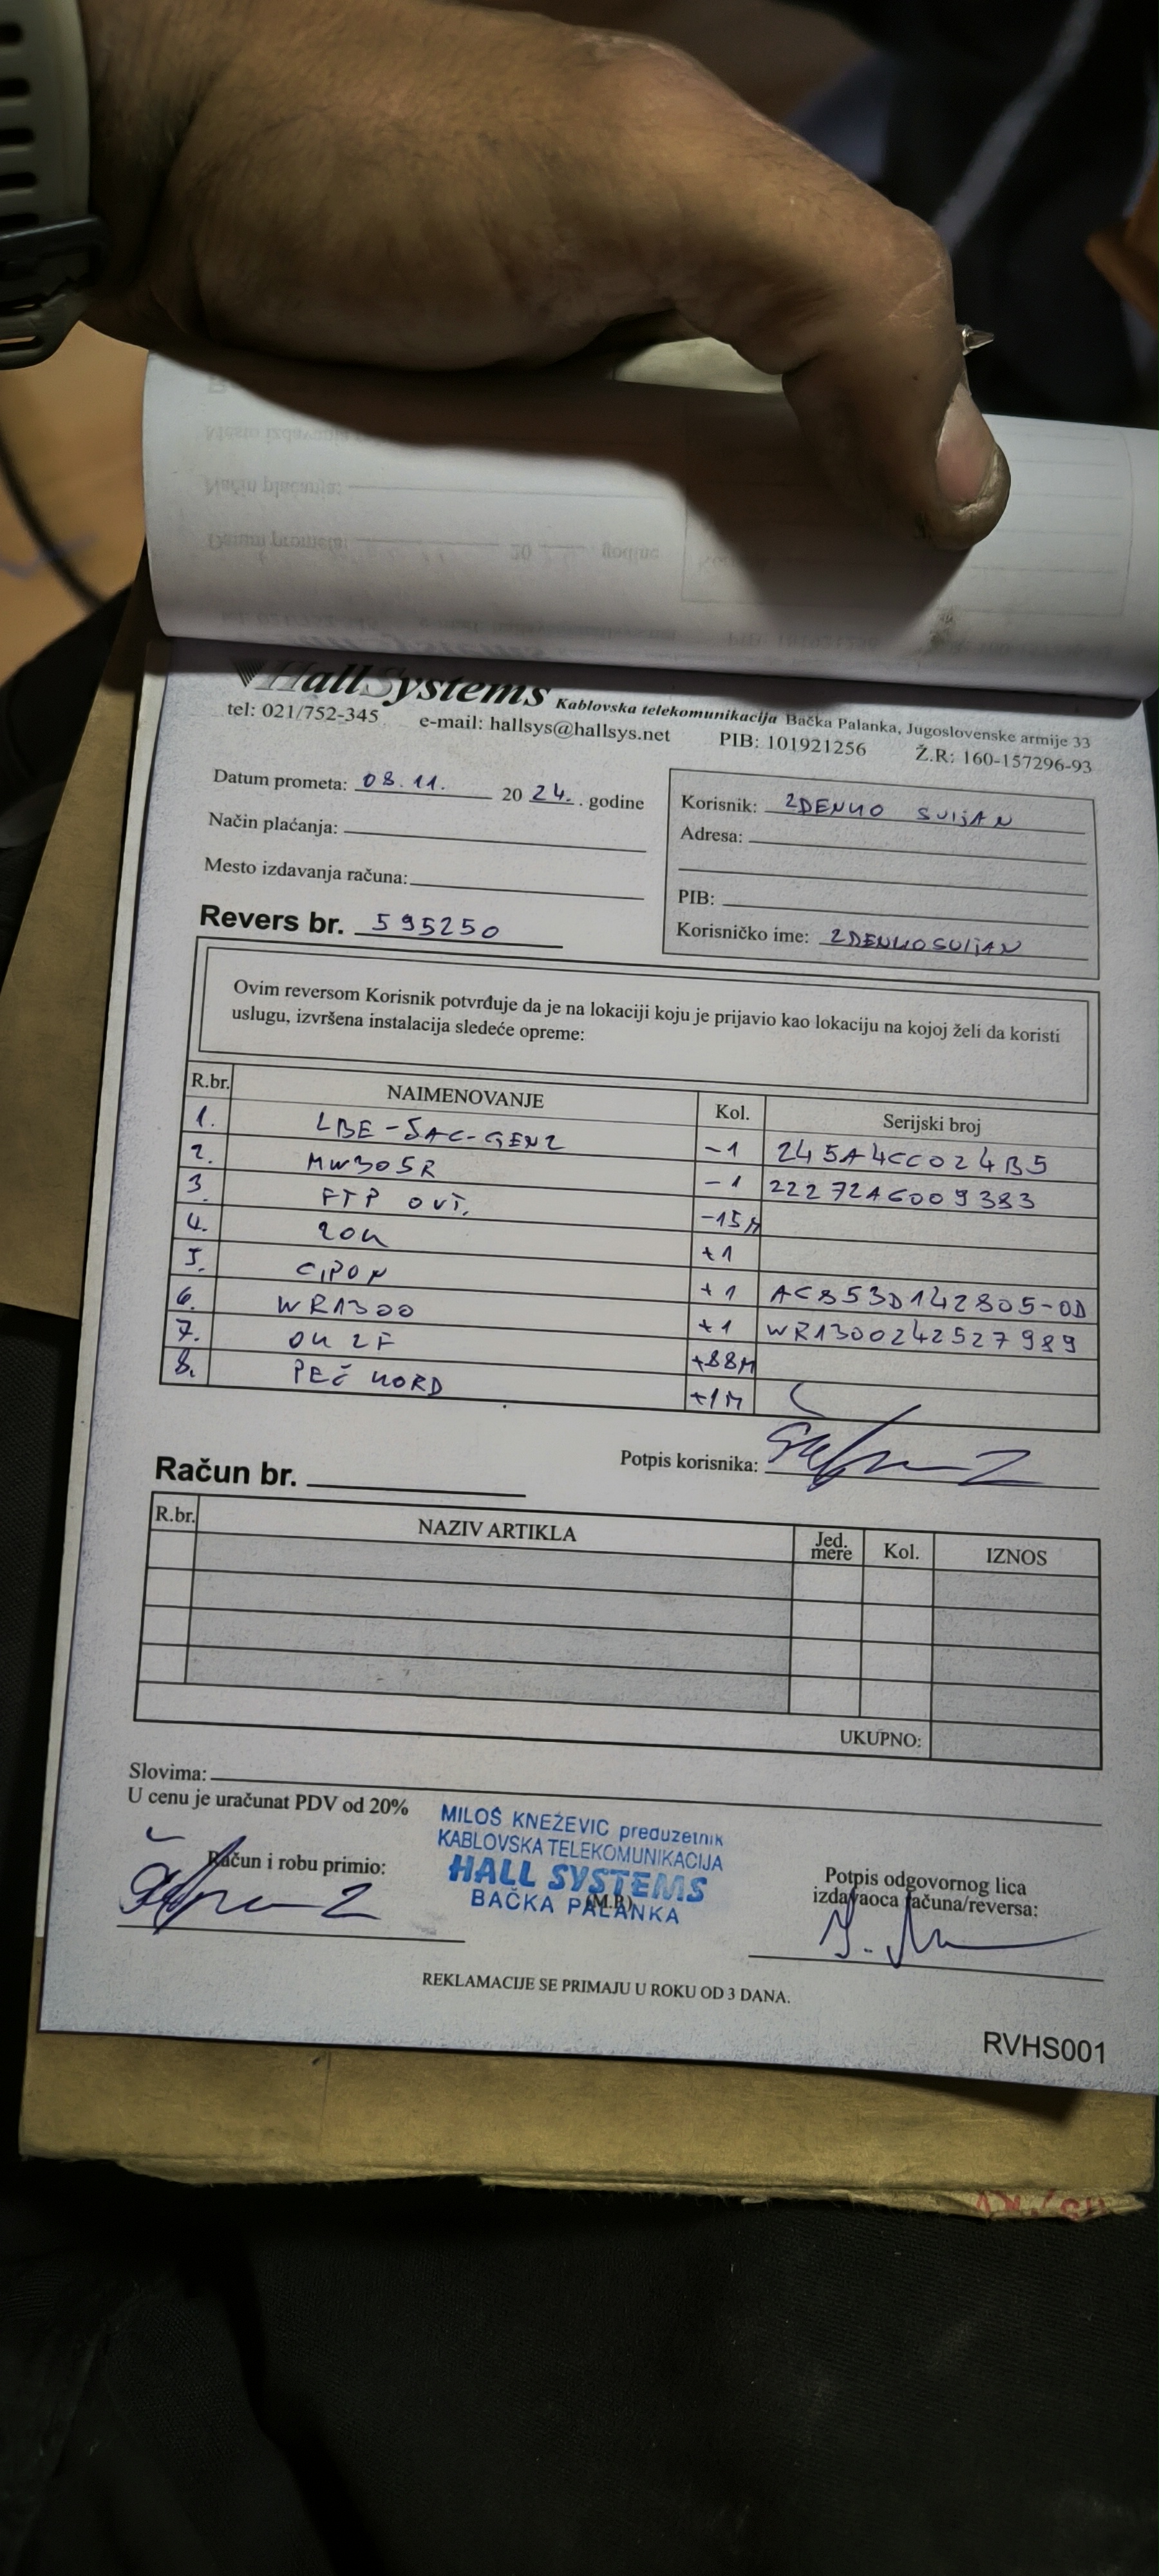 HallSystems Kablovska telekomunikacija Bačka Palanka, Jugoslovenske armije 33
tel: 021/752-345 e-mail: hallsys@hallsys.net PIB: 101921256 Ž.R: 160-157296-93
Datum prometa: 08.11. 20 24. . godine
Način plaćanja:
Mesto izdavanja računa:
Revers br. 595250
Korisnik: ZDENKO SVIJAN
Adresa:
PIB:
Korisničko ime: ZDENKOSVIJAN
Ovim reversom Korisnik potvrđuje da je na lokaciji koju je prijavio kao lokaciju na kojoj želi da koristi
uslugu, izvršena instalacija sledeće opreme:
R.br. NAIMENOVANJE Kol. Serijski broj
1. LBE-5AC-GEN2 -1 245A4CC024B5
2. MW305R -1 22272AC009383
3. FTP OUT. -15M
4. ZOK +1
5. GPON +1 ACB53D142805-0D
6. WR1300 +1 WR1300242527989
7. OK 2F +88M
8. PEČ KORD +1M
Potpis korisnika:
Račun br.
R.br. NAZIV ARTIKLA Jed. mere Kol. IZNOS
UKUPNO:
Slovima:
U cenu je uračunat PDV od 20%
MILOŠ KNEŽEVIC preduzetnik
KABLOVSKA TELEKOMUNIKACIJA
HALL SYSTEMS
BAČKA PALANKA
Račun i robu primio:
(M.P.)
Potpis odgovornog lica
izdavaoca računa/reversa:
REKLAMACIJE SE PRIMAJU U ROKU OD 3 DANA.
RVHS001